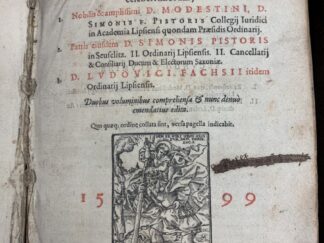 1. Nobilis & amplissimi D. MODESTINI, D.
SIMONIS F. PISTORIS Collegij Iuridici
in Academia Lipsiensi quondam Præsidis Ordinarij.
2. Patris eiusdem D. SIMONIS PISTORIS
in Seuselitz. II. Ordinarij Lipsiensis. II. Cancellarij
& Consiliarij Ducum & Electorum Saxoniæ.
3. D. LVDOVICI FACHSII itidem
Ordinarij Lipsiensis.
Duobus voluminibus comprehensa & nunc denuò
emendatius edita.
Qui quoq; ordine collata sint, versa pagella indicabit.
1599